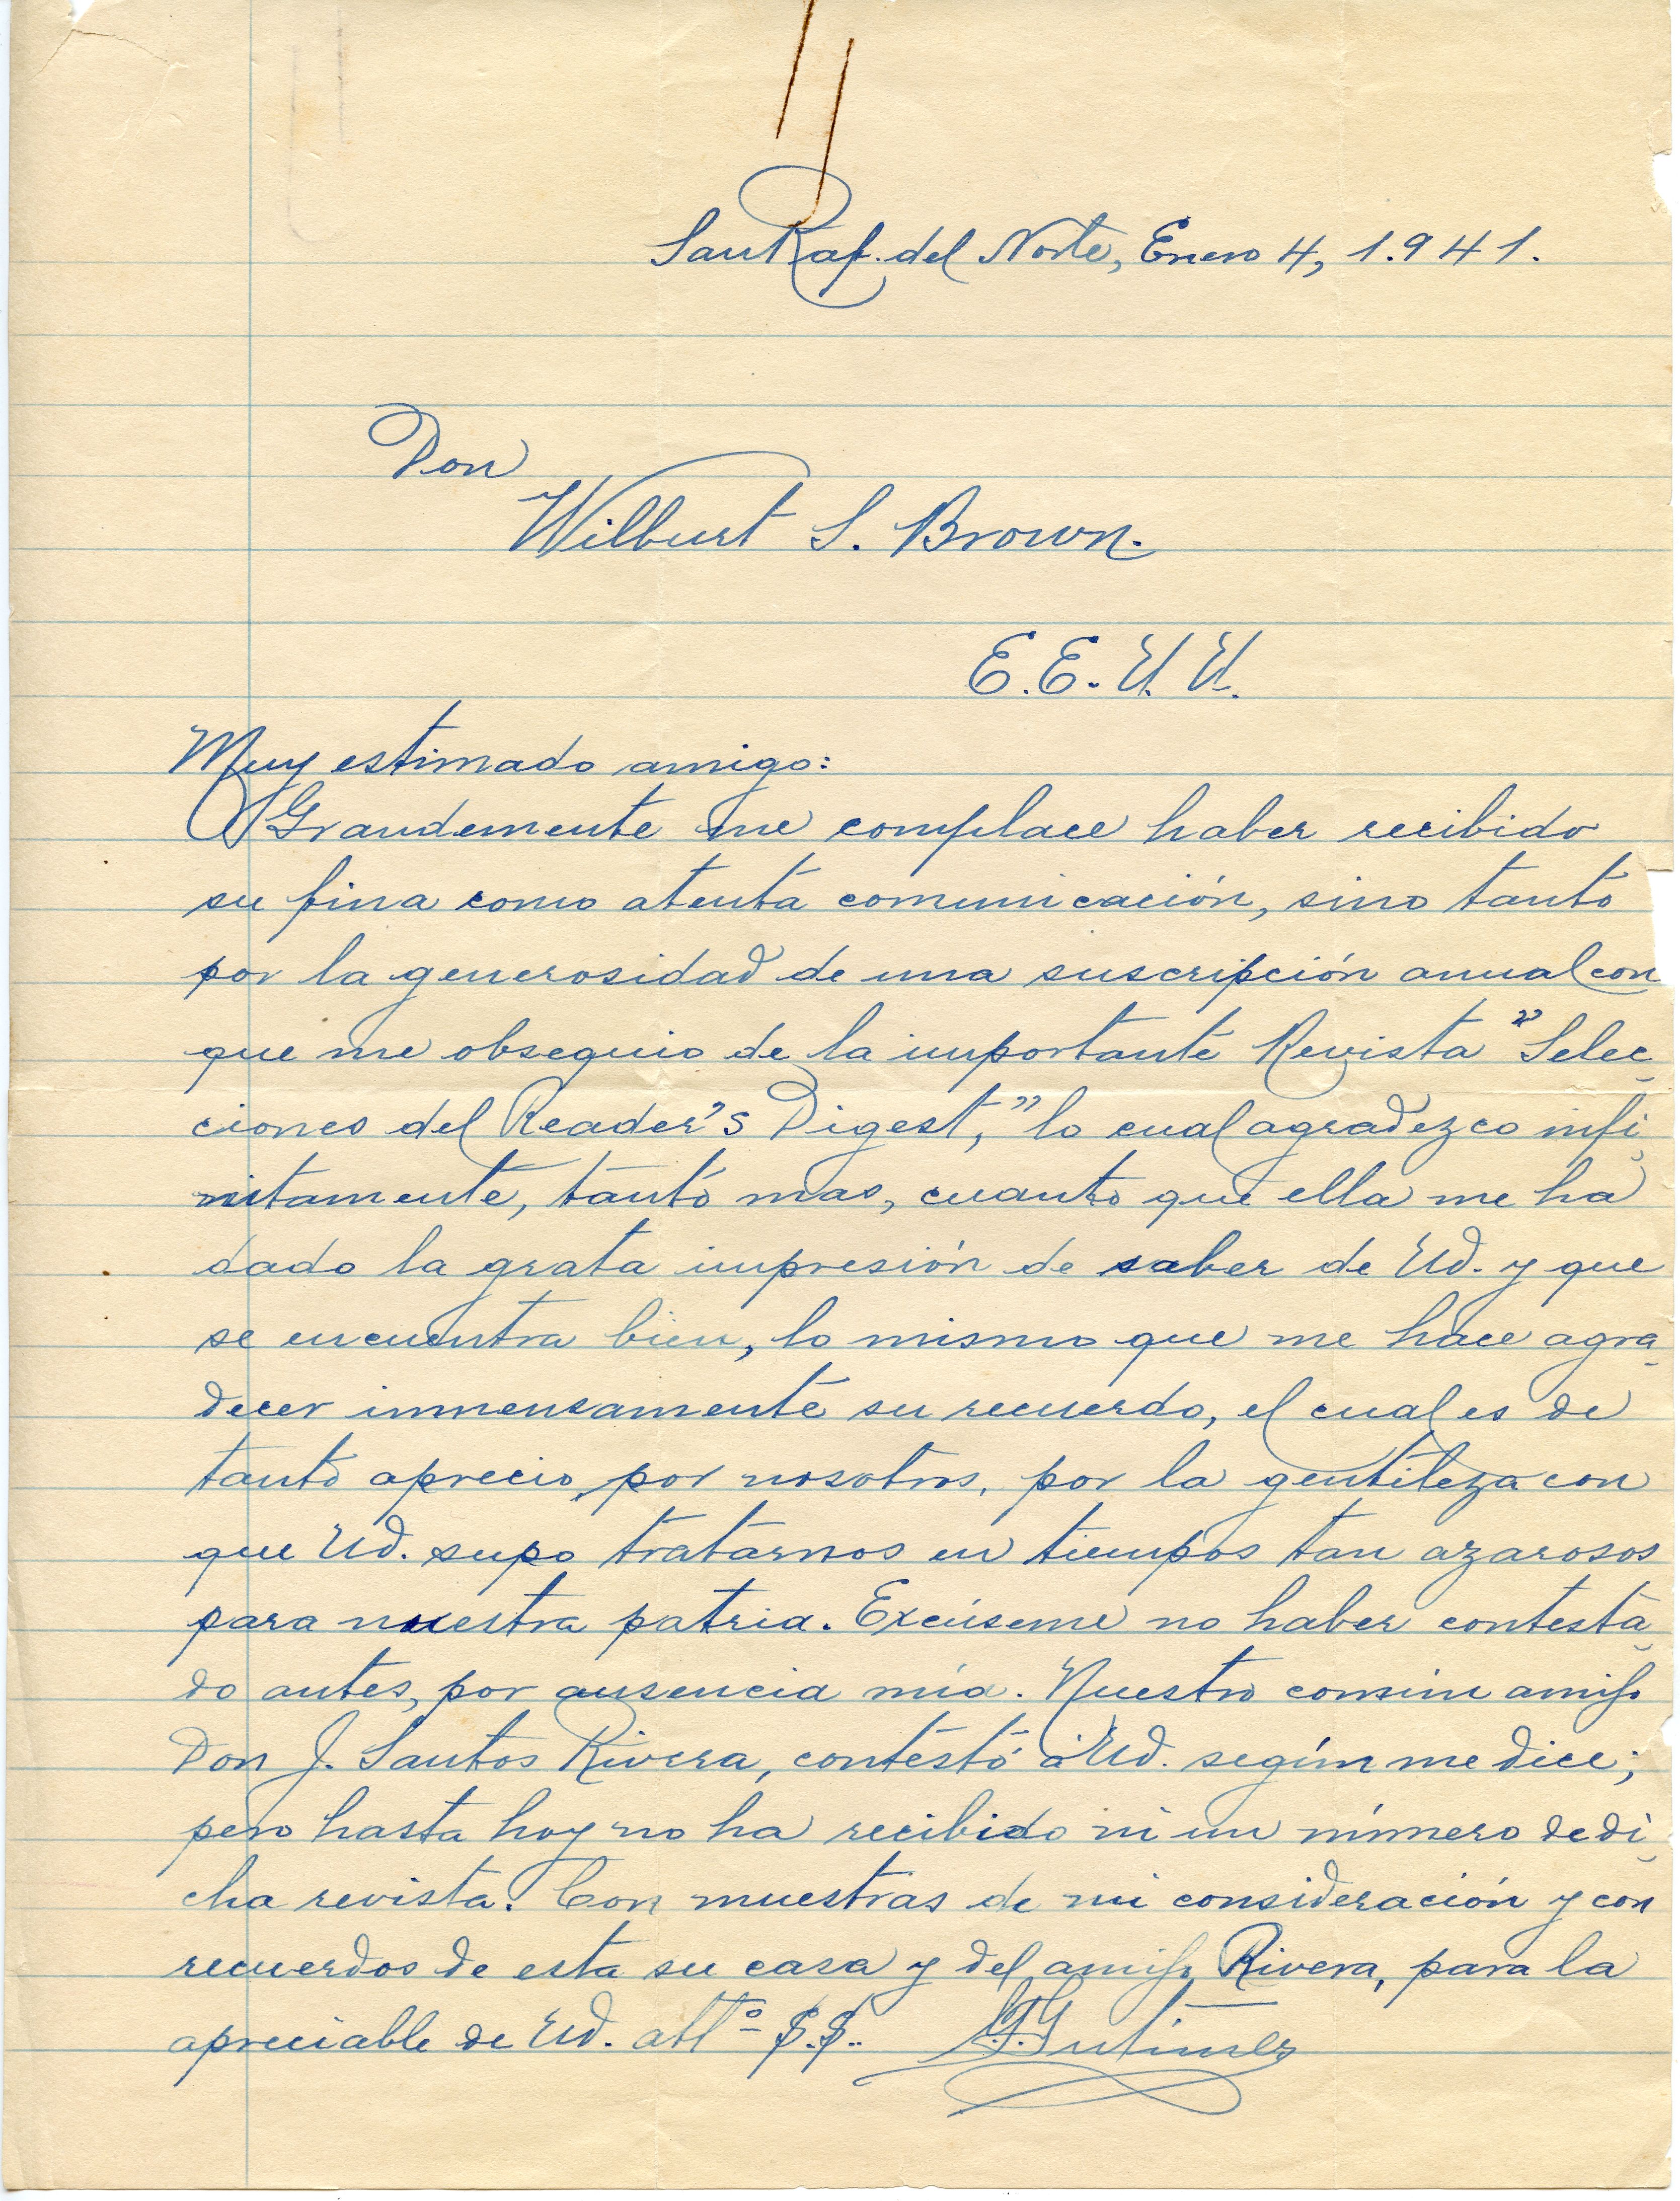 San Raf. del Norte, Enero 4, 1.941.
Don
Wilburt S. Brown.
E.E.U.U.
Muy estimado amigo:
Grandemente me complace haber recibido
su fina como atenta comunicación, sino tanto
por la generosidad de una suscripción anual con
que me obsequio de la importante Revista "Selec-
ciones del Reader's Digest," lo cual agradezco infi-
nitamente, tanto mas, cuanto que ella me ha
dado la grata impresión de saber de Ud. y que
se encuentra bien, lo mismo que me hace agra-
decer inmensamente su recuerdo, el cual es de
tanto aprecio por nosotros, por la gentileza con
que Ud. supo tratarnos en tiempos tan azarosos
para nuestra patria. Excúseme no haber contesta-
do antes, por ausencia mía. Nuestro común amigo
Don J. Santos Rivera, contestó a Ud. según me dice;
pero hasta hoy no ha recibido ni un número de di-
cha revista. Con muestras de mi consideración y con
recuerdos de esta su casa y del amigo Rivera, para la
apreciable de Ud. attº S.S. Gutiérrez